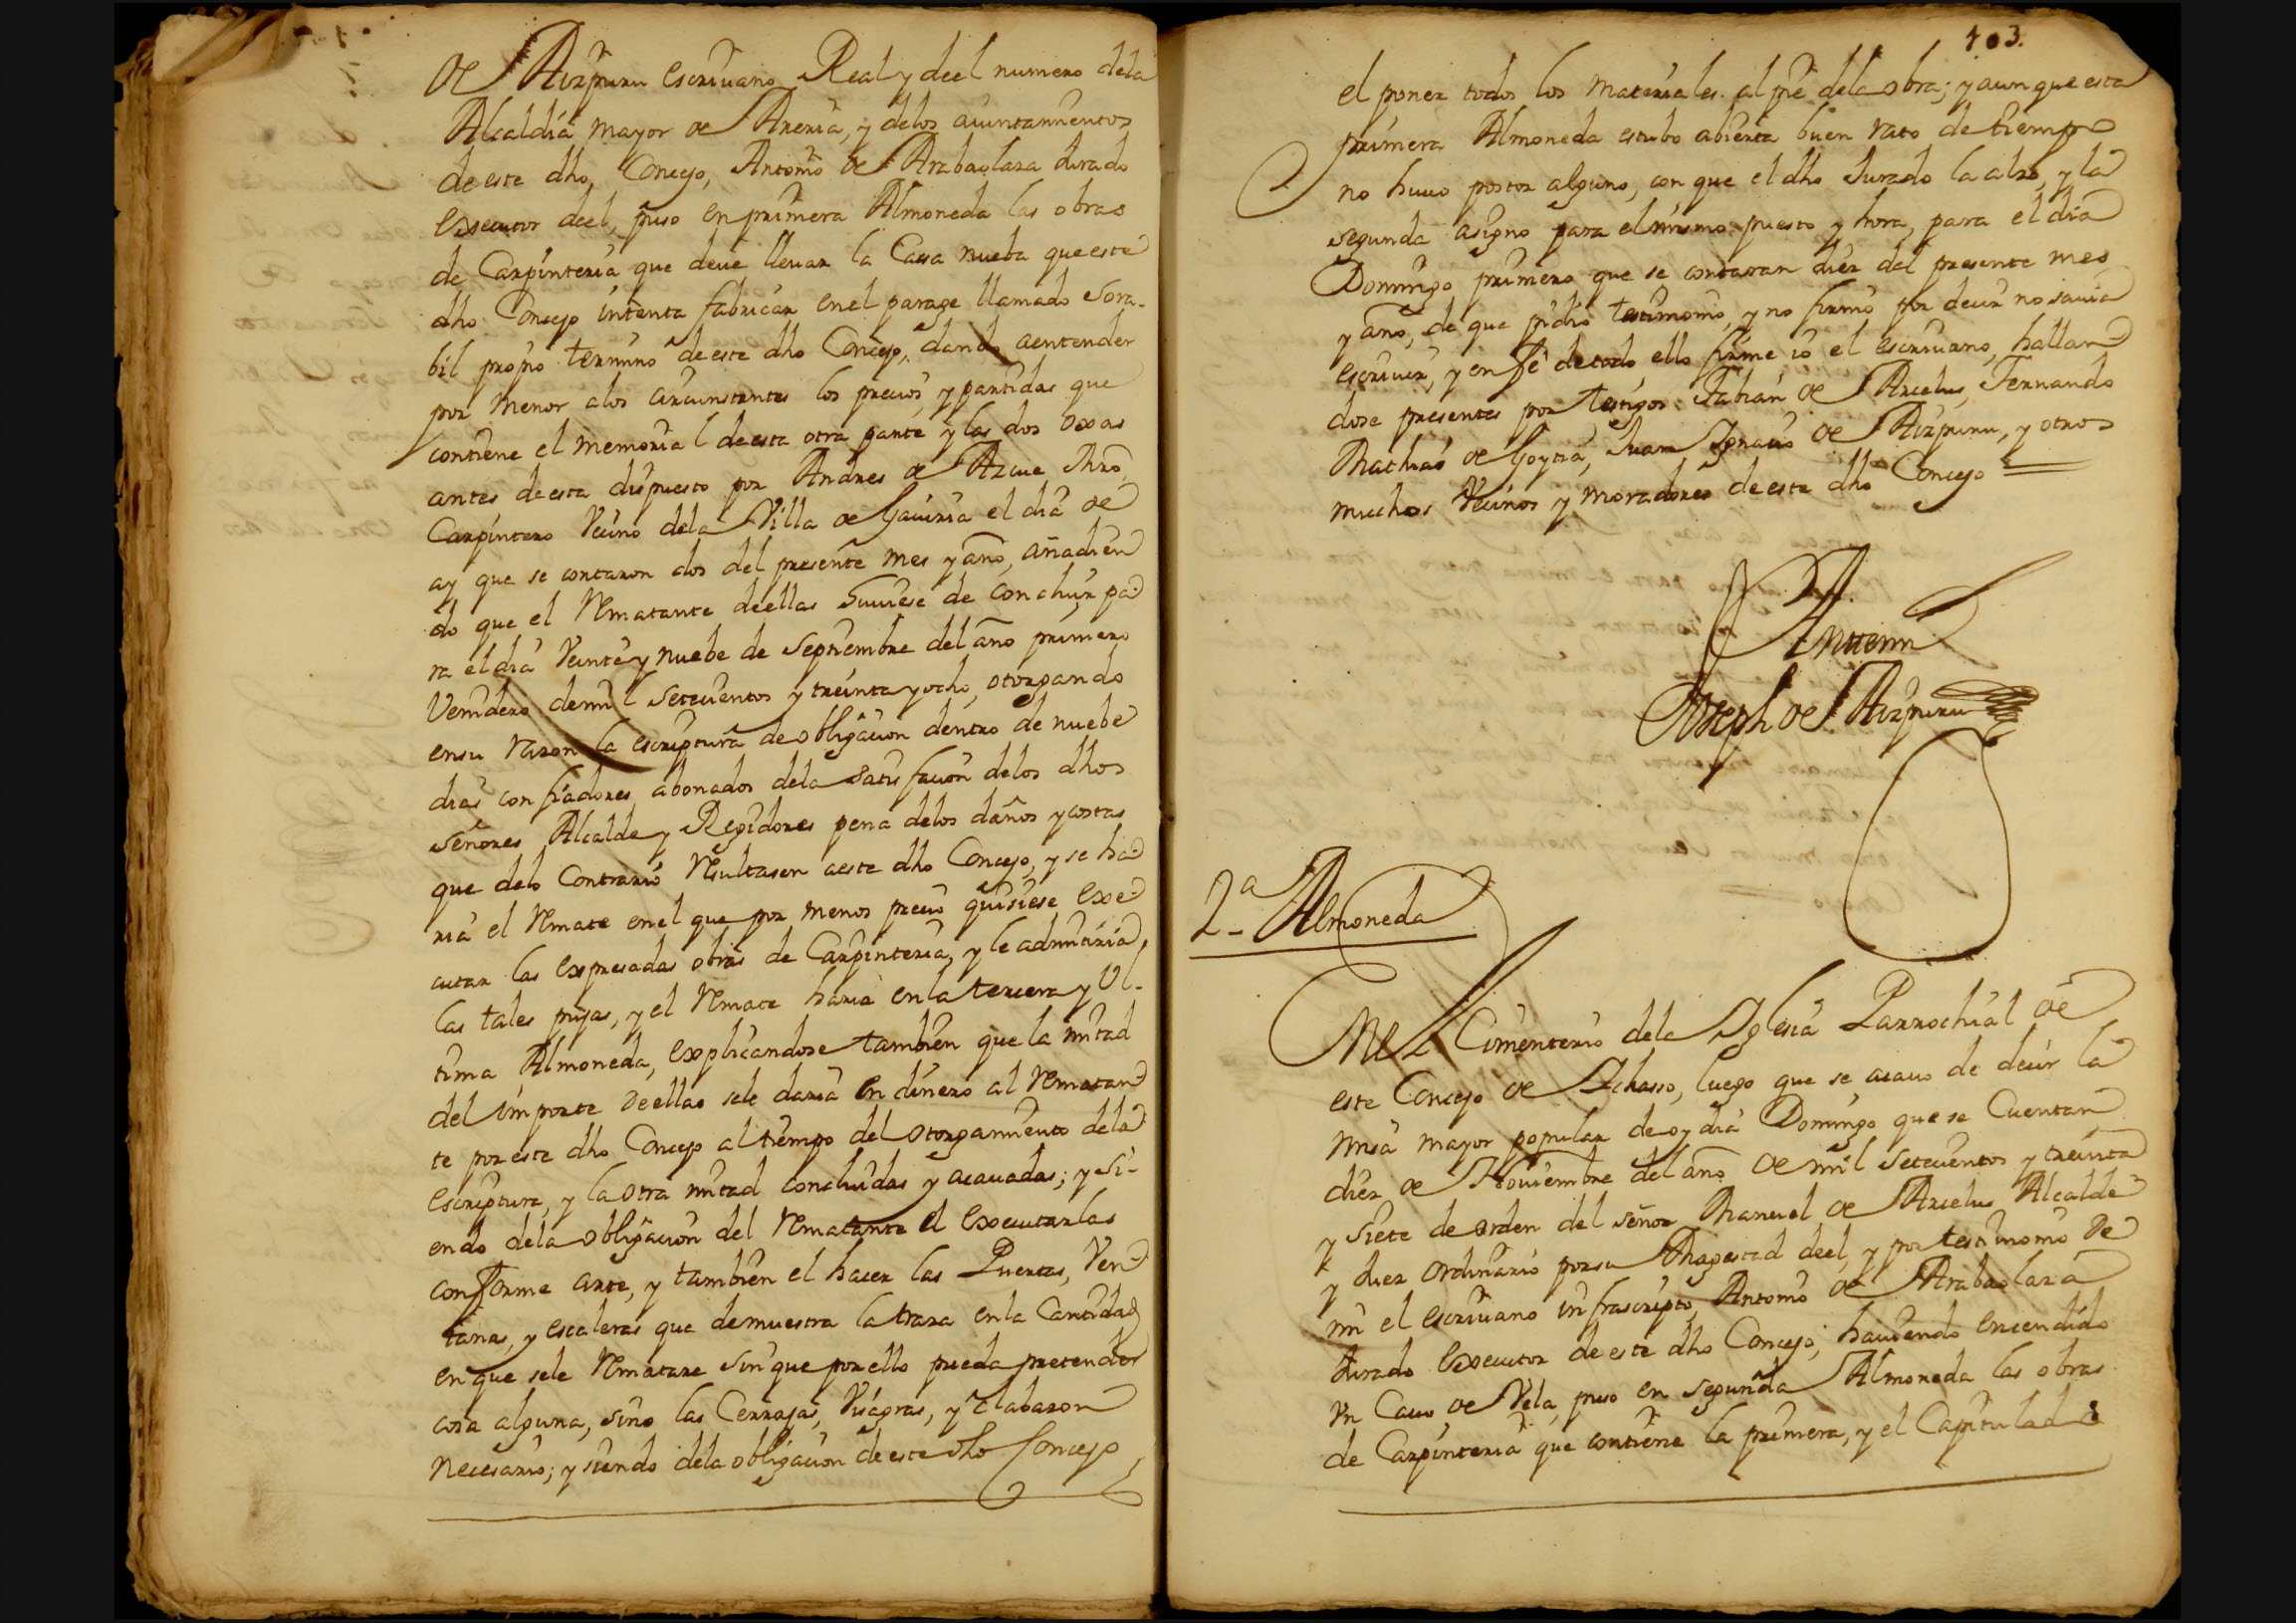 de Aizpuru escriuano Real y deel numero dela
Alcaldia mayor de Areria, y delos aiuntamientos
de este dho, Concejo, Antonio de Arabaolaza Jurado
executor deel, puso en primera Almoneda las obras
de Carpinteria que deue lleuar la Cassa nueba que este
dho Concejo intenta fabricar enel parage llamado Sora-
bil propio termino de este dho Concejo, dando aentender
por menor alos circunstantes los precios, y partidas que
contiene el memorial de esta otra parte y las dos oxas
antes de esta dispuesto por Andres de Azcue Mro,
Carpintero Vecino dela Villa de Gauiria el dia de
ay que se contaron dos del presente mes y año, añadien
do que el Rematante deellas huuiese de concluir pa
ra el dia Veinte y nuebe de Septiembre del año primero
Venidero de mil Setecientos y treinta y ocho, otorgando
ensu razon la escriptura de obligacion dentro de nuebe
dias con fiadores abonados dela satisfacion delos dhos
señores Alcalde y Regidores pena delos daños y costas
que delo Contrario Resultasen aeste dho Concejo, y se ha
ria el Remate enel que por menos precio quisiese exe
cutar las expresadas obras de Carpinteria, y le admitiria
las tales pujas, y el Remate haria en la tercera y Ul-
tima Almoneda, explicandose tambien que la mitad
del importe deellas sele daria en dinero al Rematan
te por este dho Concejo al tiempo del otorgamiento dela
escriptura, y la otra mitad concluidas y acauadas; y si-
endo dela obligacion del Rematante el executarlas
conforme arte, y tambien el hacer las Puertas, Ven
tanas, y escaleras que demuestra la traza en la Cantidad
en que sele Rematare sin que por ello pueda pretender
cosa alguna, sino las Cerrajas, Visagras, y Clabazon
necesario; y siendo dela obligacion de este dho Concejo
103.
el poner todos los materiales al pie dela obra; y aunque esta
primera Almoneda estubo abierta buen rato de tiempo
no huuo postor alguno, con que el dho Jurado la alzo, y la
segunda asigno para el mismo puesto y hora, para el dia
Domingo primero que se contaran diez del presente mes
y año, de que pidio testimonio, y no firmo por decir no sauia
escriuir, y en fe de todo ello firme io el escriuano, hallan
dose presentes por testigos Fabian de Arcelus, Fernando
Mathias de Goytia, Juan Ignacio de Aizpuru, y otros
muchos Vecinos y moradores de este dho Concejo
Antemi
Joseph de Aizpuru
2ª Almoneda
En el Cimenterio dela Iglesia Parrochial de
este Concejo de Ichasso, luego que se acauo de decir la
misa mayor popular de oy dia Domingo que se Cuentan
diez de Nouiembre del año de mil Setecientos y treinta
y Siete de orden del señor Manuel de Arcelus Alcalde
y Juez ordinario por su Magestad deel, y por testimonio de
mi el escriuano infrascripto, Antonio de Arabaolaza
Jurado executor de este dho Concejo, hauiendo encendido
vn Cauo de Vela, puso en segunda Almoneda las obras
de Carpinteria que contiene la primera, y el Capitulado